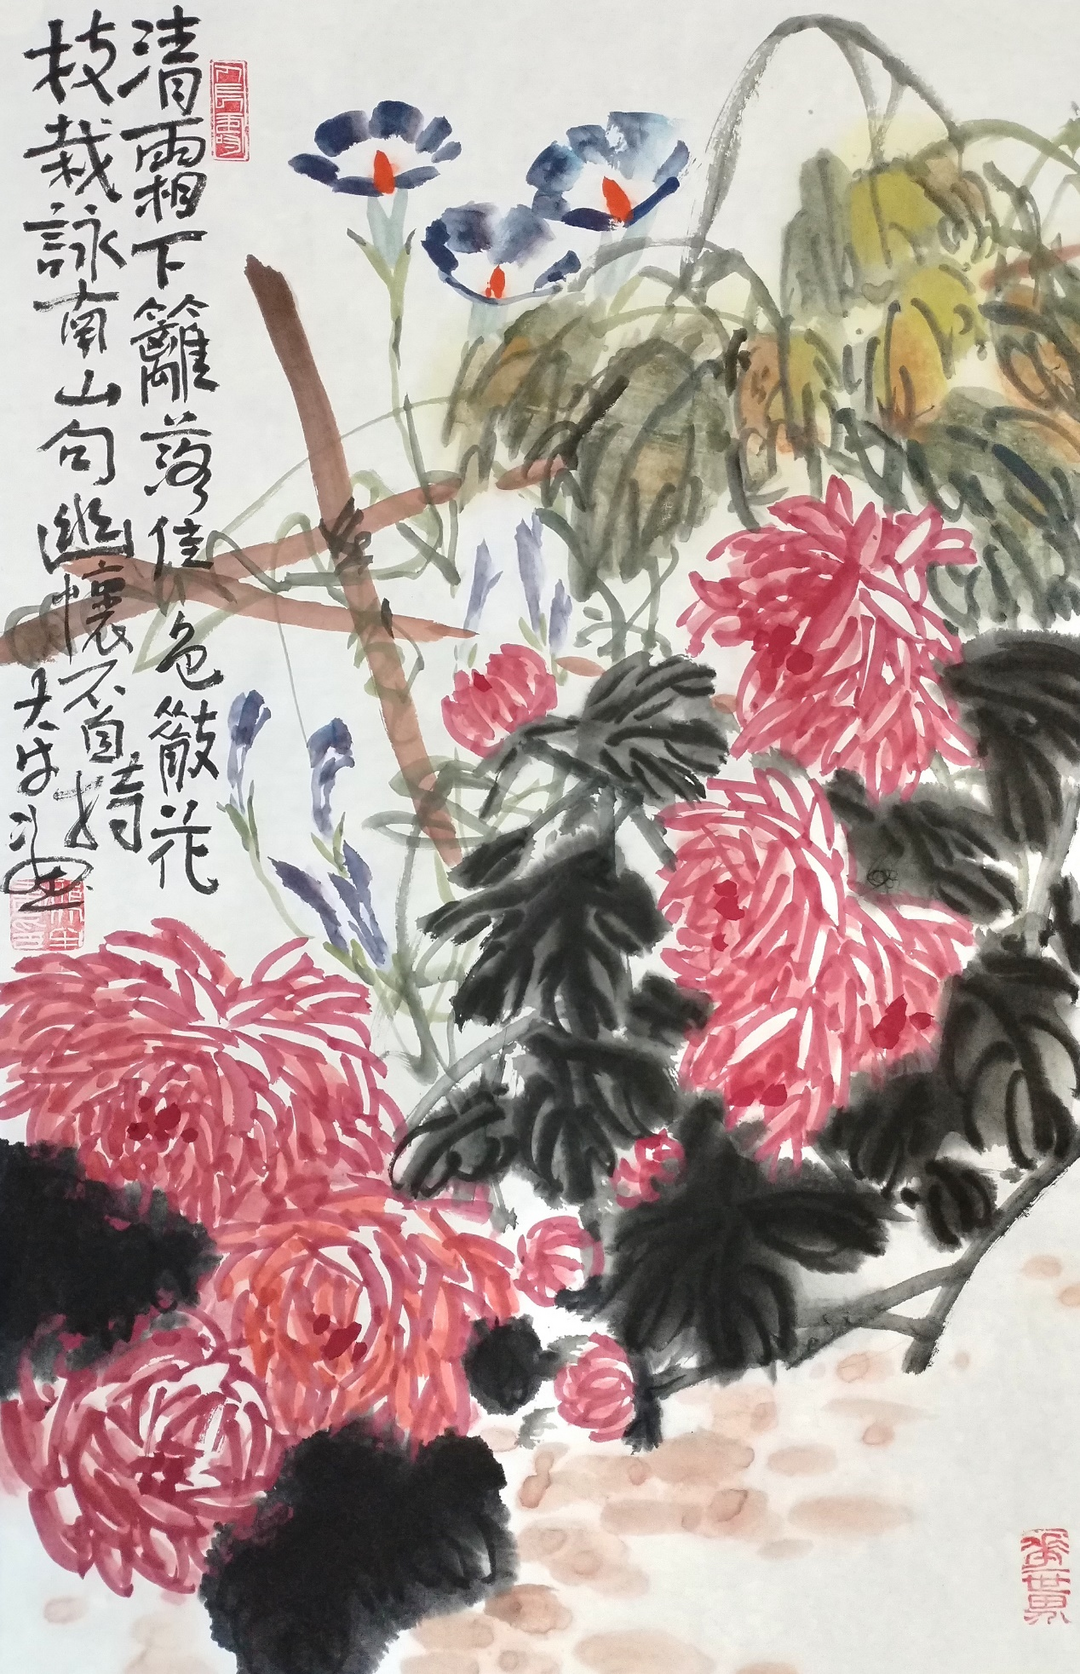 清霜下籬落佳色散花
枝栽詠南山句幽懷不自持
大牛画